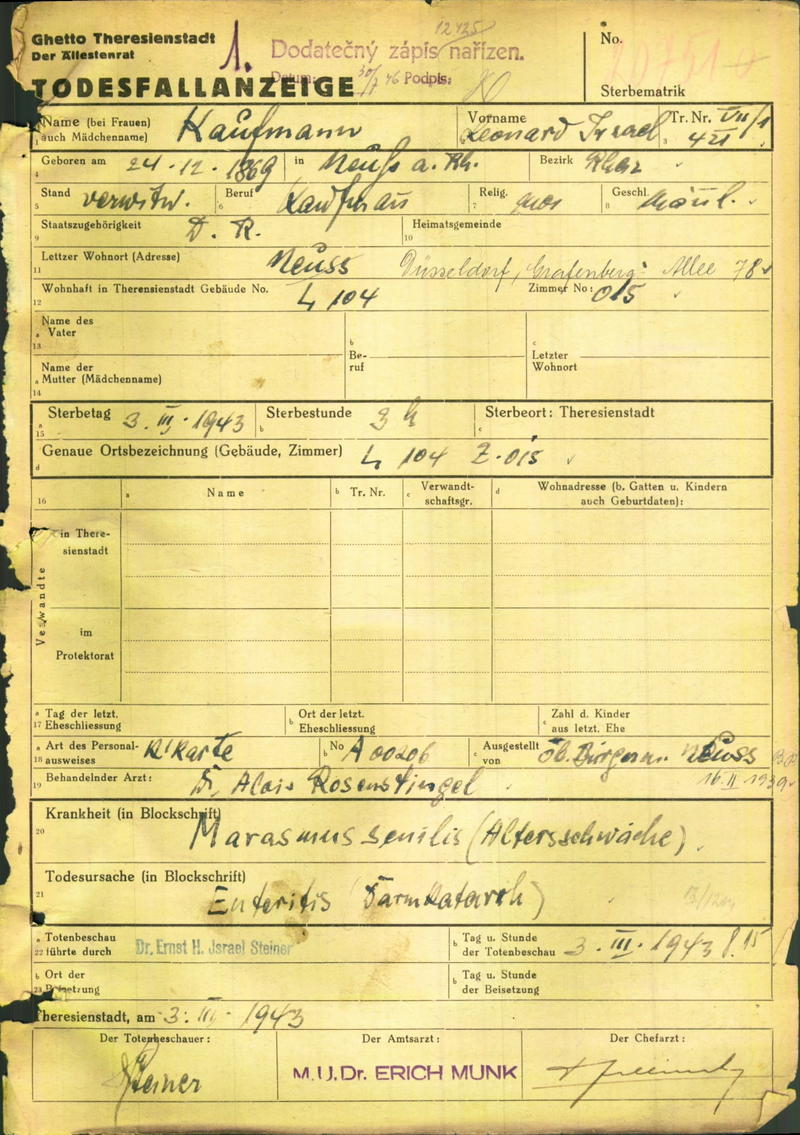 Ghetto Theresienstadt
Der Ältestenrat
1.
12425
Dodatečný zápis nařízen.
Datum: 30/7 46 Podpis:
No.
TODESFALLANZEIGE
Sterbematrik
Name (bei Frauen) auch Mädchenname) Kaufmann
Vorname Leonard Israel
Tr. Nr. VII/1 421
Geboren am 24.12.1869 in Neuss a. Rh. Bezirk
Stand verwitw. Beruf Kaufmann Relig. mos Geschl. männl.
Staatszugehörigkeit D. R. Heimatsgemeinde
Lettzer Wohnort (Adresse) Neuss Düsseldorf, Grafenberg. Allee 78
Wohnhaft in Theresienstadt Gebäude No. L 104 Zimmer No: 015
Name des Vater
Be-ruf
Letzter Wohnort
Name der Mutter (Mädchenname)
Sterbetag 3. III. 1943 Sterbestunde 3 h Sterbeort: Theresienstadt
Genaue Ortsbezeichnung (Gebäude, Zimmer) L 104 Z. 015
Name
Tr. Nr.
Verwandt-schaftsgr.
Wohnadresse (b. Gatten u. Kindern auch Geburtdaten):
Verwandte
in There-sienstadt
im Protektorat
Tag der letzt. Eheschliessung
Ort der letzt. Eheschliessung
Zahl d. Kinder aus letzt. Ehe
Art des Personal-ausweises K'Karte No A 00206 Ausgestellt von Ob. Bürgerm. Neuss
16 II 1939
Behandelnder Arzt: Dr. Alois Rosenstingel
Krankheit (in Blockschrift) Marasmus senilis (Altersschwäche)
Todesursache (in Blockschrift) Enteritis (Darmkatarrh)
Totenbeschau führte durch Dr. Ernst H. Jsrael Steiner
Tag u. Stunde der Totenbeschau 3. III. 1943 8.15
Ort der Beisetzung
Tag u. Stunde der Beisetzung
Theresienstadt, am 3. III. 1943
Der Totenbeschauer: Steiner
Der Amtsarzt: M.U.Dr. ERICH MUNK
Der Chefarzt: